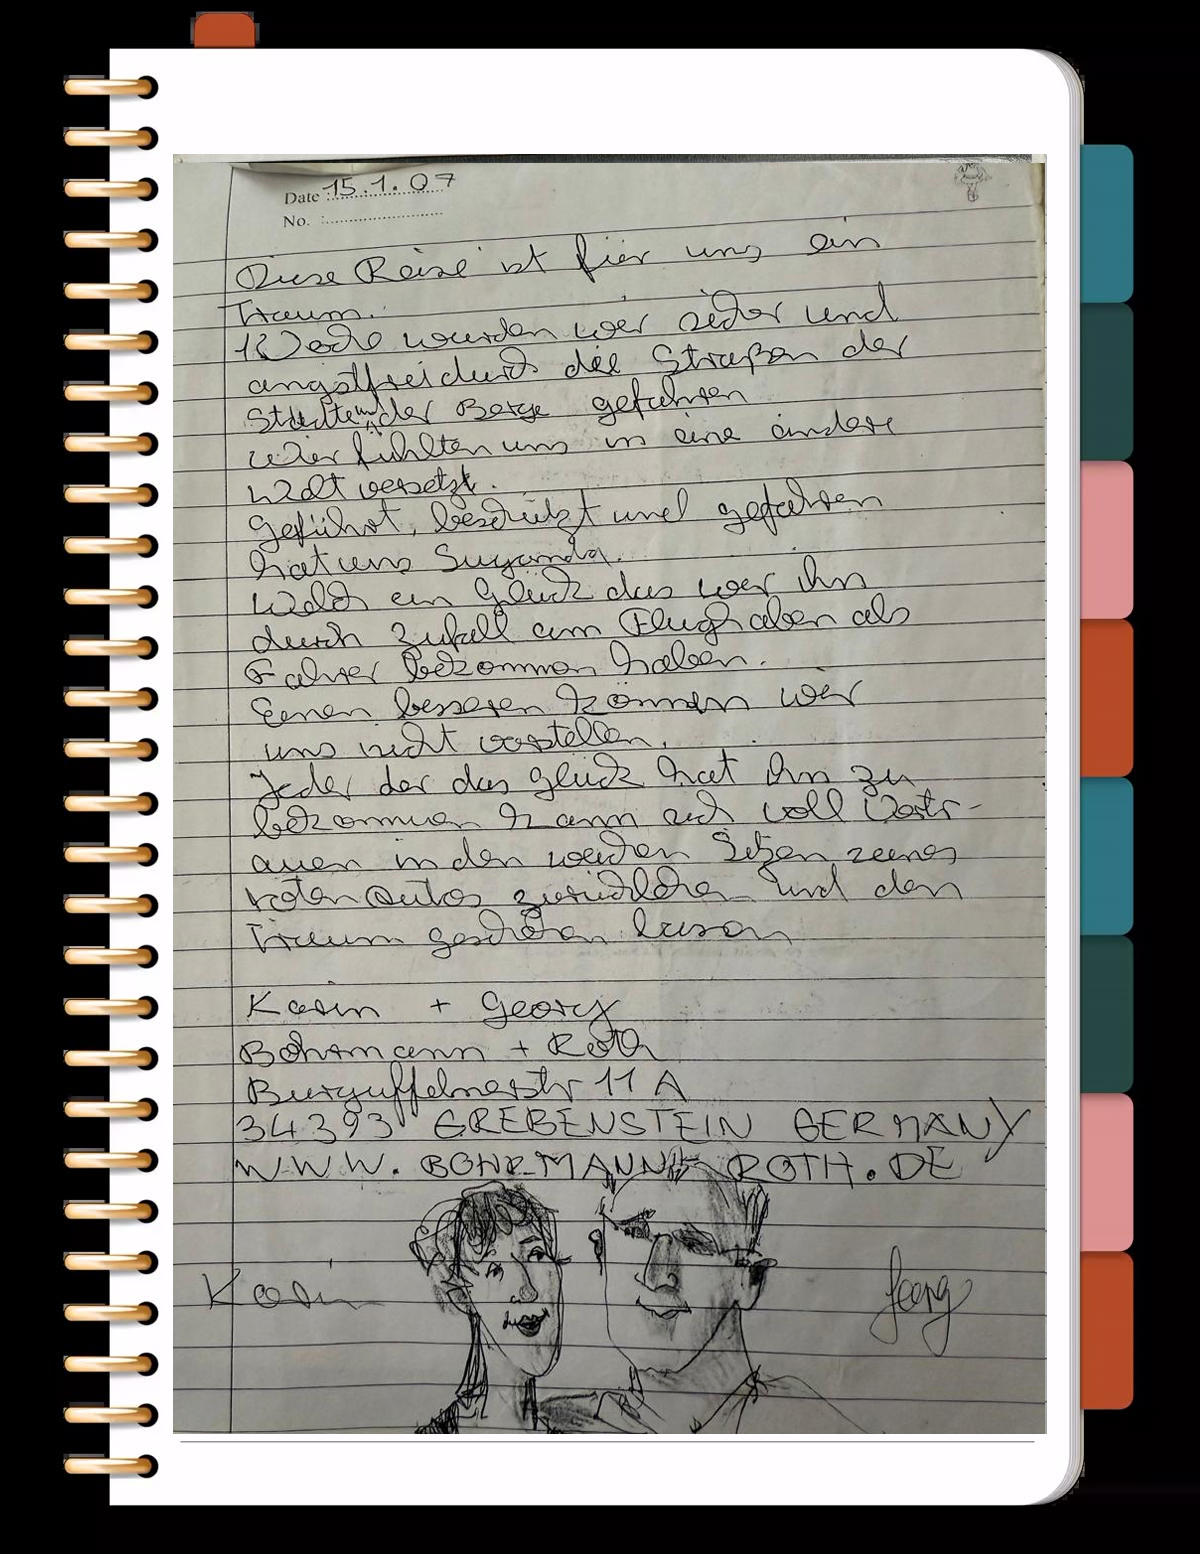 Date : 15.1.07
No. :
Diese Reise ist für uns ein
Traum.
1 Woche wurden wir sicher und
angstfrei durch die Straßen der
Städte und der Berge gefahren
Wir fühlten uns in eine andere
Welt versetzt.
Geführt, beschützt und gefahren
hat uns Suyanda.
Welch ein Glück das wir ihn
durch Zufall am Flughaben als
Fahrer bekommen haben.
Einen besseren können wir
uns nicht vorstellen.
Jeder der das Glück hat ihn zu
bekommen kann sich voll Vertr-
auen in den weichen Sitzen seines
roten Autos zurücklehen und den
Traum geschehen lassen
Karin + Georg
Bohrmann + Roth
Burguffelnerstr 11 A
34393 GREBENSTEIN GERMANY
WWW.BOHRMANN-ROTH.DE
Karin Georg